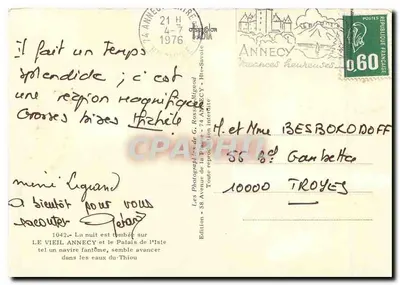 74 ANNECY
21 H
4-7
1976
ANNECY
POSTES
0,60
REPUBLIQUE FRANCAISE
Il fait un temps
splendide ; c'est
une région magnifique
Grosses bises Michèle
mimi Legrand
A bientôt pour vous
raconter Gérard
1042. - La nuit est tombée sur
LE VIEIL ANNECY et le Palais de l'Isle
tel un navire fantôme, semble avancer
dans les eaux du Thiou
Edition - 38 Avenue de la - 74 ANNECY - Hte-Savoie
Toute reproduction interdite
M. et Mme BESBOKODOFF
56 Bd Gambetta
10000 TROYES
Cartes Postales .com